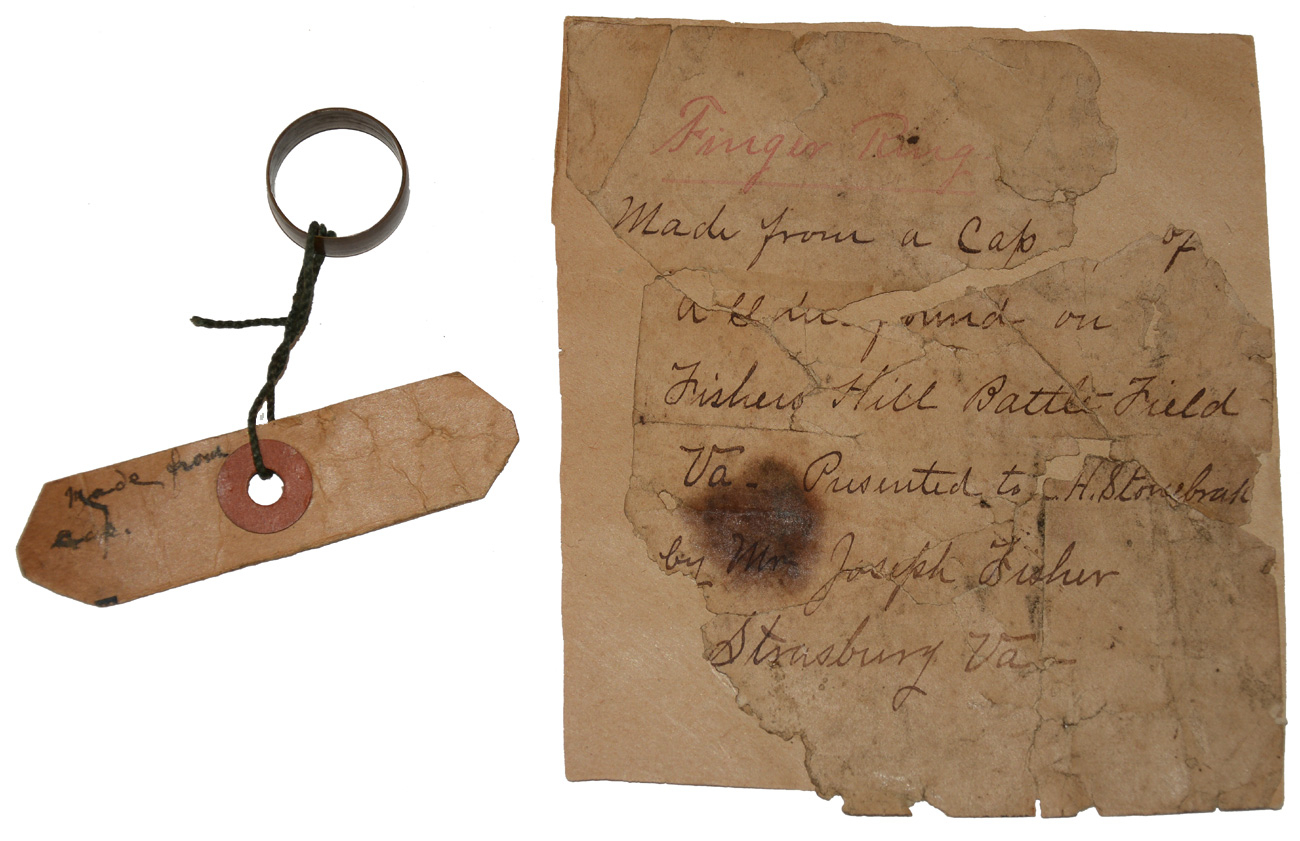 Made from
Cap.
Finger Ring
Made from a Cap of
a found on
Fishers Hill Battle Field
Va - Presented to H. Stonebrak
by Mr Joseph Fisher
Strasburg Va -